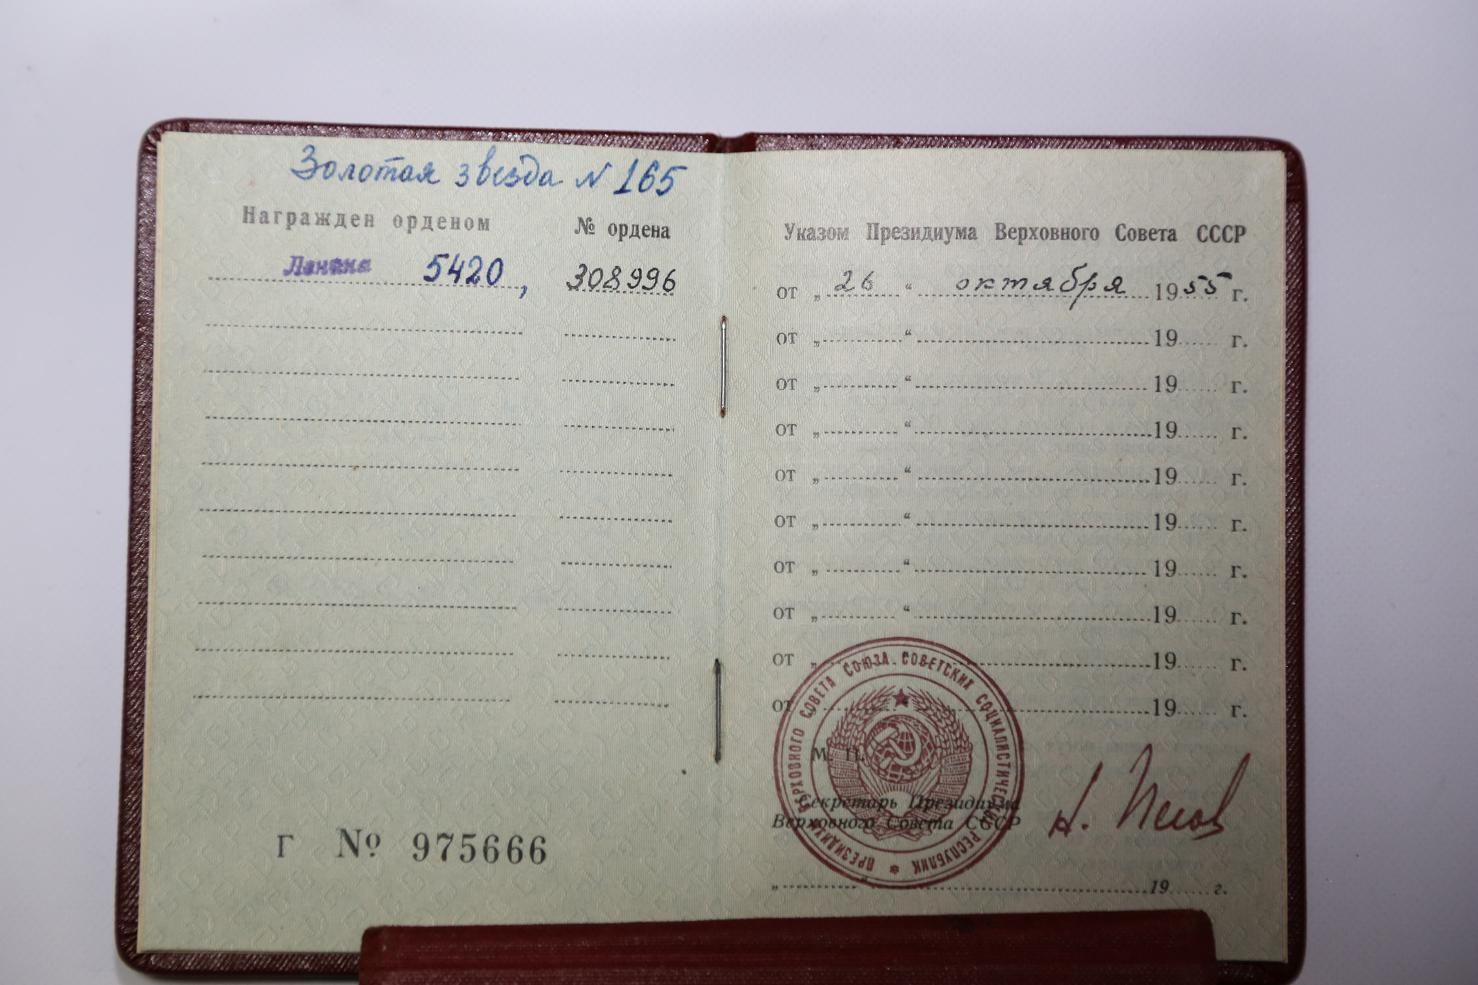 Золотая звезда № 165
Награжден орденом № ордена
Ленина 5420, 308996
Г № 975666
Указом Президиума Верховного Совета СССР
от „ 26 “ октября 1955 г.
от „ “ 19 г.
от „ “ 19 г.
от „ “ 19 г.
от „ “ 19 г.
от „ “ 19 г.
от „ “ 19 г.
от „ “ 19 г.
от „ “ 19 г.
от „ “ 19 г.
М. П.
Секретарь Президиума
Верховного Совета СССР
„ “ 19 г.
ПРЕЗИДИУМ ВЕРХОВНОГО СОВЕТА СОЮЗА СОВЕТСКИХ СОЦИАЛИСТИЧЕСКИХ РЕСПУБЛИК